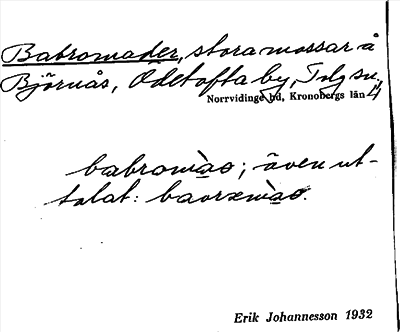 Babromader, stora mossar å
Björnås, Odetofta by, Tolg sn.
Norrvidinge hd, Kronobergs län 4
babromào; även ut-
talat: baorxmào.
Erik Johannesson 1932